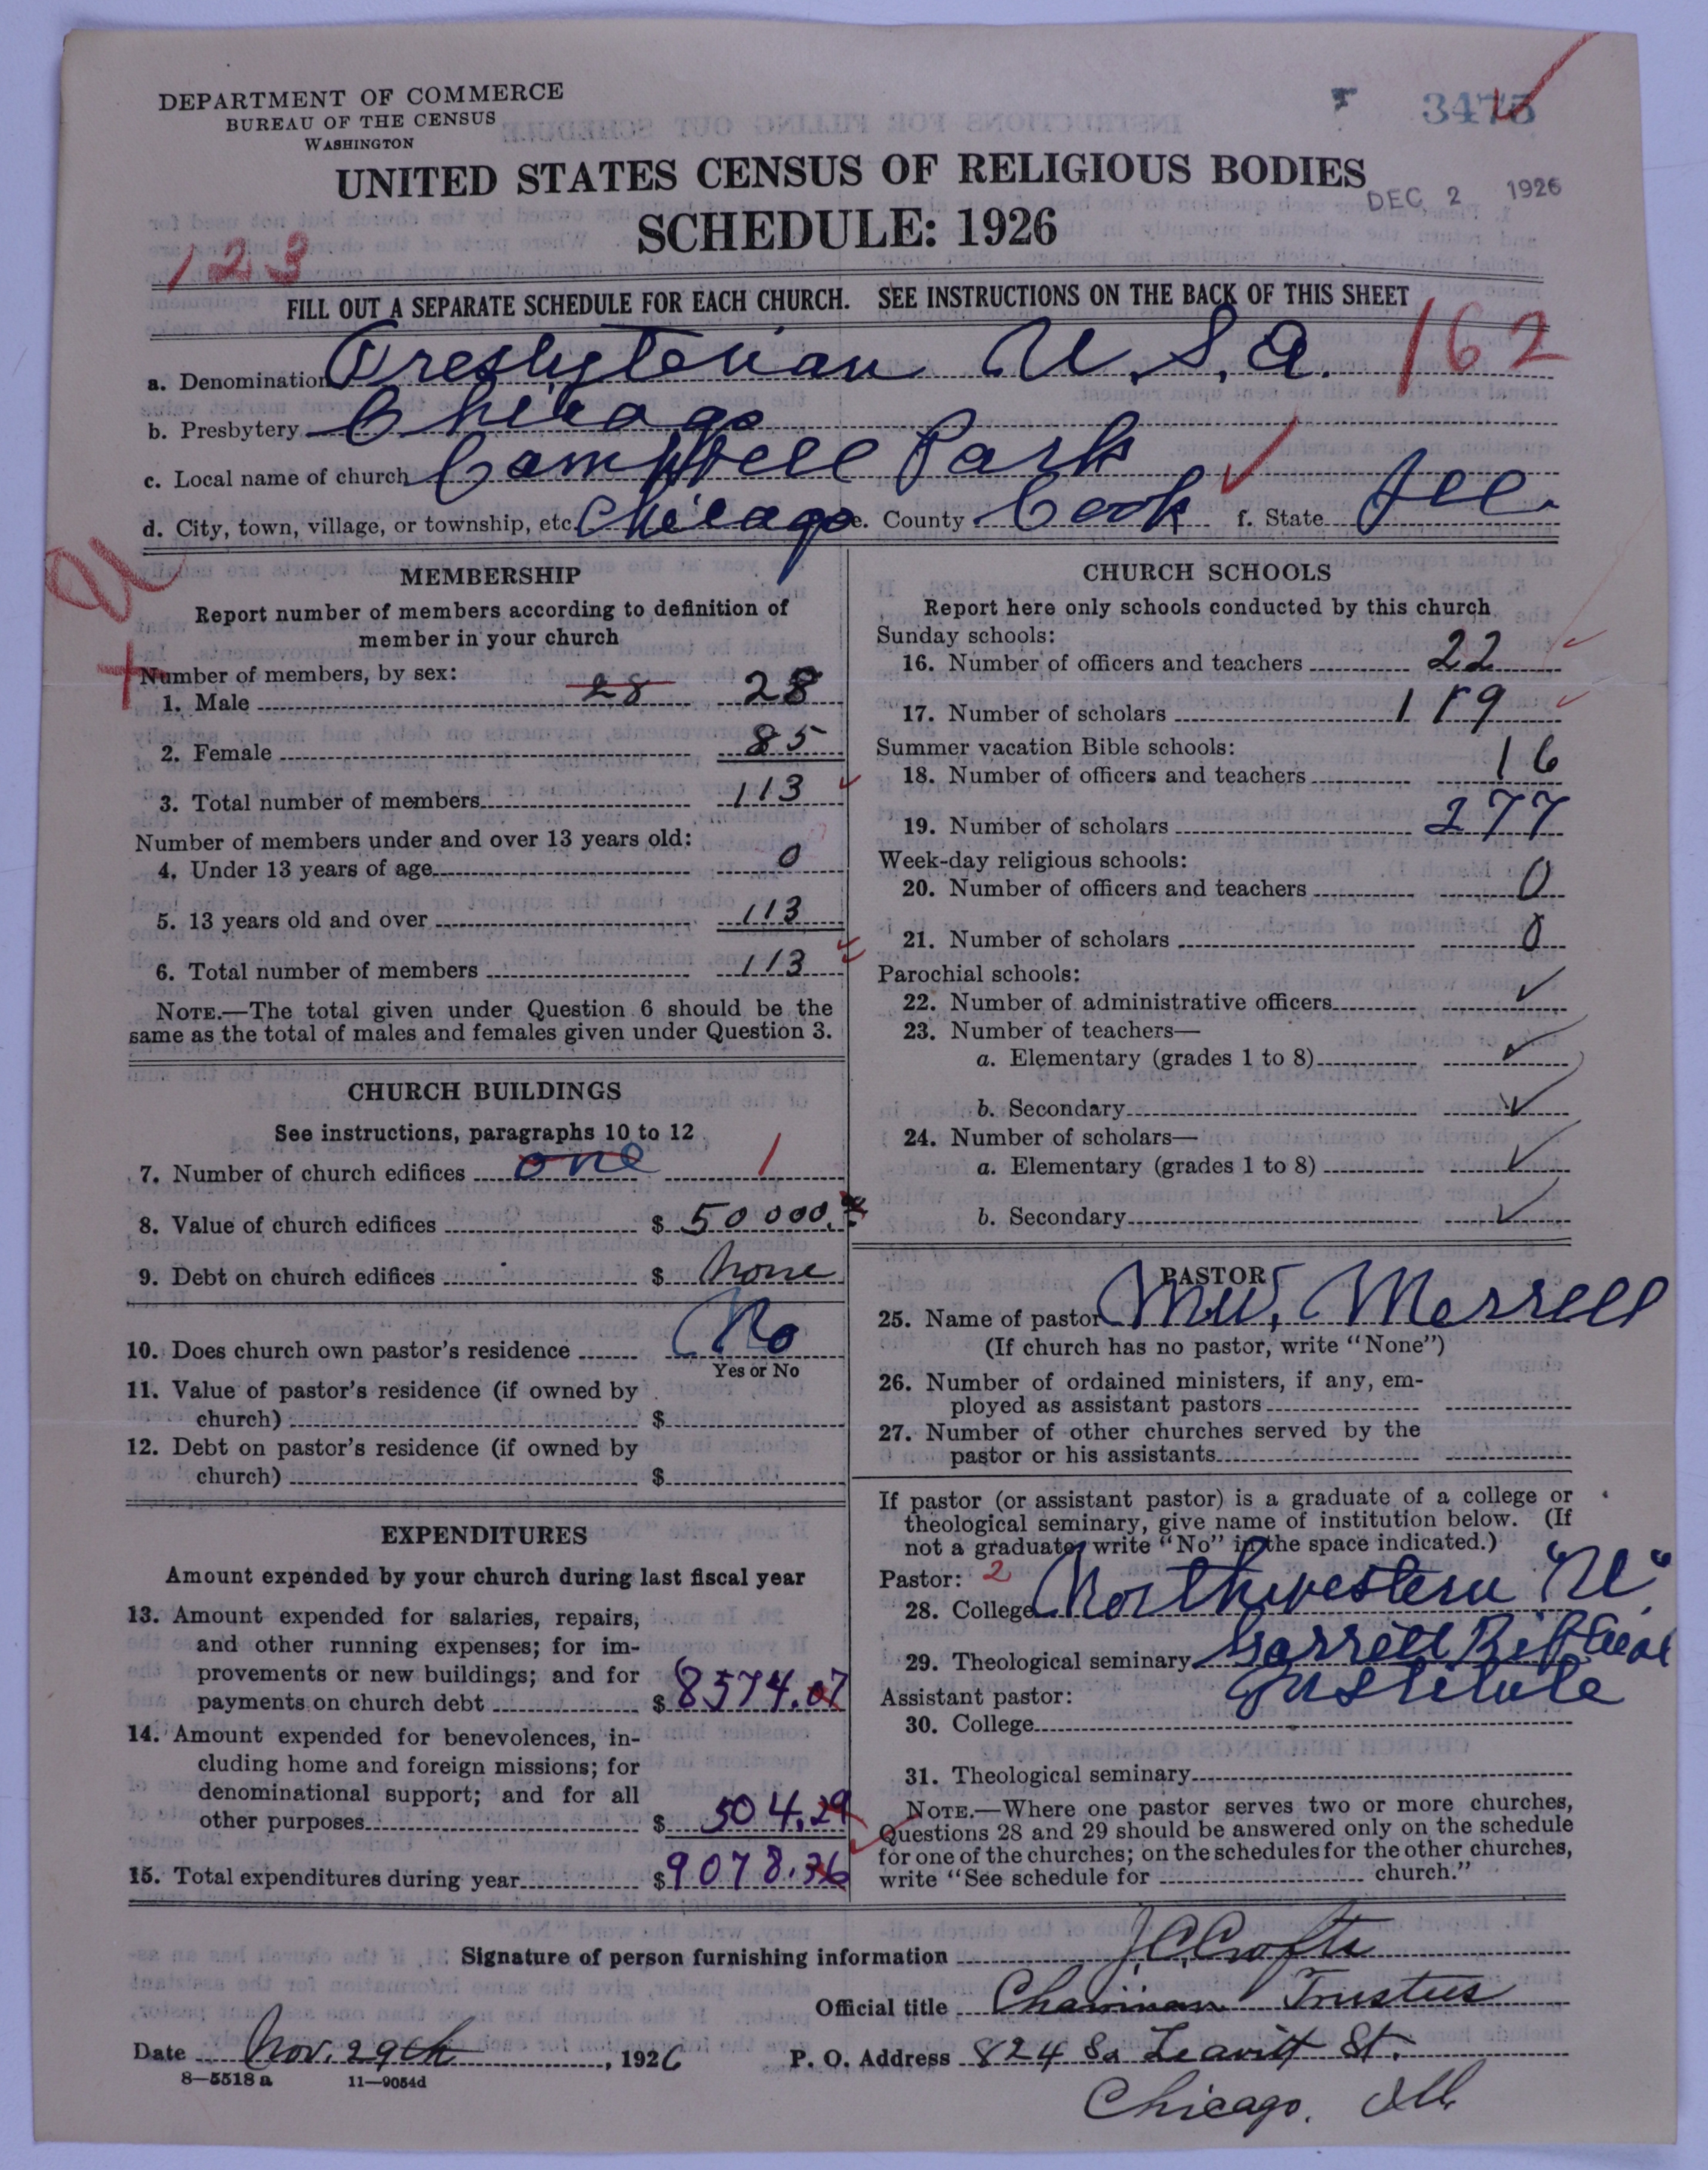 DEPARTMENT OF COMMERCE
BUREAU OF THE CENSUS
WASHINGTON
3475
UNITED STATES CENSUS OF RELIGIOUS BODIES
DEC 2 1926
SCHEDULE: 1926
123
FILL OUT A SEPARATE SCHEDULE FOR EACH CHURCH. SEE INSTRUCTIONS ON THE BACK OF THIS SHEET
162
a. Denomination Presbyterian U.S.A.
b. Presbytery Chicago
c. Local name of church Campbell Park
d. City, town, village, or township, etc. Chicago e. County Cook f. State Ill.
MEMBERSHIP
Report number of members according to definition of
member in your church
Number of members, by sex:
1. Male 28 28
2. Female 85
3. Total number of members 113
Number of members under and over 13 years old:
4. Under 13 years of age 0
5. 13 years old and over 113
6. Total number of members 113
NOTE.—The total given under Question 6 should be the
same as the total of males and females given under Question 3.
CHURCH BUILDINGS
See instructions, paragraphs 10 to 12
7. Number of church edifices one 1
8. Value of church edifices $ 50000.
9. Debt on church edifices $ None
10. Does church own pastor's residence No
Yes or No
11. Value of pastor's residence (if owned by
church) $
12. Debt on pastor's residence (if owned by
church) $
EXPENDITURES
Amount expended by your church during last fiscal year
13. Amount expended for salaries, repairs,
and other running expenses; for im-
provements or new buildings; and for
payments on church debt $ 8574.07
14. Amount expended for benevolences, in-
cluding home and foreign missions; for
denominational support; and for all
other purposes $ 504.29
15. Total expenditures during year $ 9078.36
CHURCH SCHOOLS
Report here only schools conducted by this church
Sunday schools:
16. Number of officers and teachers 22
17. Number of scholars
Summer vacation Bible schools:
18. Number of officers and teachers 16
19. Number of scholars 277
Week-day religious schools:
20. Number of officers and teachers 0
21. Number of scholars 0
Parochial schools:
22. Number of administrative officers
23. Number of teachers—
a. Elementary (grades 1 to 8)
b. Secondary
24. Number of scholars—
a. Elementary (grades 1 to 8)
b. Secondary
PASTOR
25. Name of pastor M.W. Merrell
(If church has no pastor, write "None")
26. Number of ordained ministers, if any, em-
ployed as assistant pastors
27. Number of other churches served by the
pastor or his assistants
If pastor (or assistant pastor) is a graduate of a college or
theological seminary, give name of institution below. (If
not a graduate, write "No" in the space indicated.)
Pastor: 2
28. College Northwestern "U"
29. Theological seminary Garrett Biblical
Institute
Assistant pastor:
30. College
31. Theological seminary
NOTE.—Where one pastor serves two or more churches,
Questions 28 and 29 should be answered only on the schedule
for one of the churches; on the schedules for the other churches,
write "See schedule for church."
Signature of person furnishing information J.C. Crofts
Official title Chairman Trustees
Date Nov. 29th, 1926 P. O. Address 824 So Leavitt St.
8—5518 a 11—9054d
Chicago, Ill.